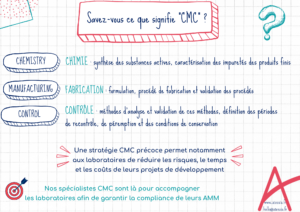 Savez-vous ce que signifie "CMC" ?
CHEMISTRY
CHIMIE : synthèse des substances actives, caractérisation des impuretés des produits finis
MANUFACTURING
FABRICATION : formulation, procédé de fabrication et validation des procédés
CONTROL
CONTRÔLE : méthodes d'analyse et validation de ces méthodes, définition des périodes
de recontrôle, de péremption et des conditions de conservation
Une stratégie CMC précoce permet notamment
aux laboratoires de réduire les risques, le temps
et les coûts de leurs projets de développement
Nos spécialistes CMC sont là pour accompagner
les laboratoires afin de garantir la compliance de leurs AMM